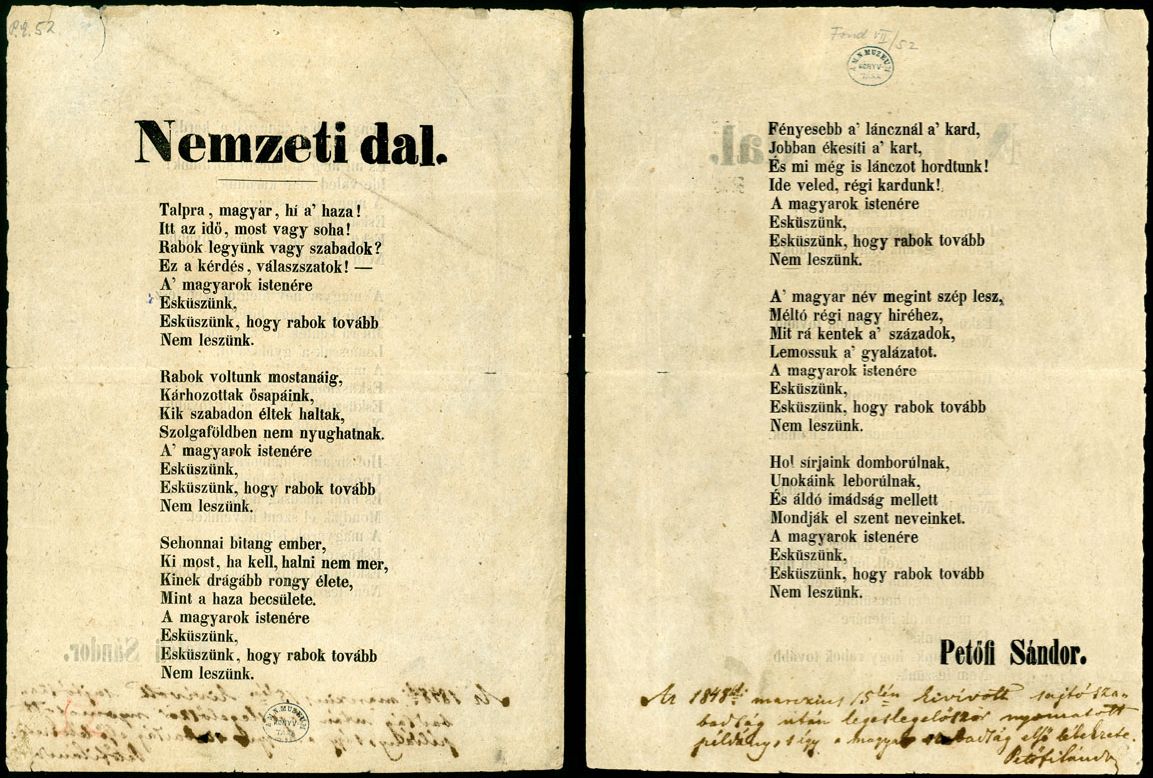 P.2.52
Nemzeti dal.
Talpra, magyar, hí a' haza!
Itt az idő, most vagy soha!
Rabok legyünk vagy szabadok?
Ez a kérdés, válaszszatok! —
A' magyarok istenére
Esküszünk,
Esküszünk, hogy rabok tovább
Nem leszünk.
Rabok voltunk mostanáig,
Kárhozottak ősapáink,
Kik szabadon éltek haltak,
Szolgaföldben nem nyughatnak.
A' magyarok istenére
Esküszünk,
Esküszünk, hogy rabok tovább
Nem leszünk.
Sehonnai bitang ember,
Ki most, ha kell, halni nem mer,
Kinek drágább rongy élete,
Mint a haza becsülete.
A magyarok istenére
Esküszünk,
Esküszünk, hogy rabok tovább
Nem leszünk.
M. N. MUZEUM KÖNYV-TÁRA
Fond VII/52
M. N. MUZEUM KÖNYV-TÁRA
Fényesebb a' láncznál a' kard,
Jobban ékesíti a' kart,
És mi még is lánczot hordtunk!
Ide veled, régi kardunk!
A magyarok istenére
Esküszünk,
Esküszünk, hogy rabok tovább
Nem leszünk.
A' magyar név megint szép lesz,
Méltó régi nagy hiréhez,
Mit rá kentek a' századok,
Lemossuk a' gyalázatot.
A magyarok istenére
Esküszünk,
Esküszünk, hogy rabok tovább
Nem leszünk.
Hol sírjaink domborúlnak,
Unokáink leborúlnak,
És áldó imádság mellett
Mondják el szent neveinket.
A magyarok istenére
Esküszünk,
Esküszünk, hogy rabok tovább
Nem leszünk.
Petőfi Sándor.
Az 1848ki marczius 15kén kivívott sajtósza-
badság után legeslegelőször nyomatott
példány, s így a magyar szabadság első lélekzete.
Petőfi Sándor